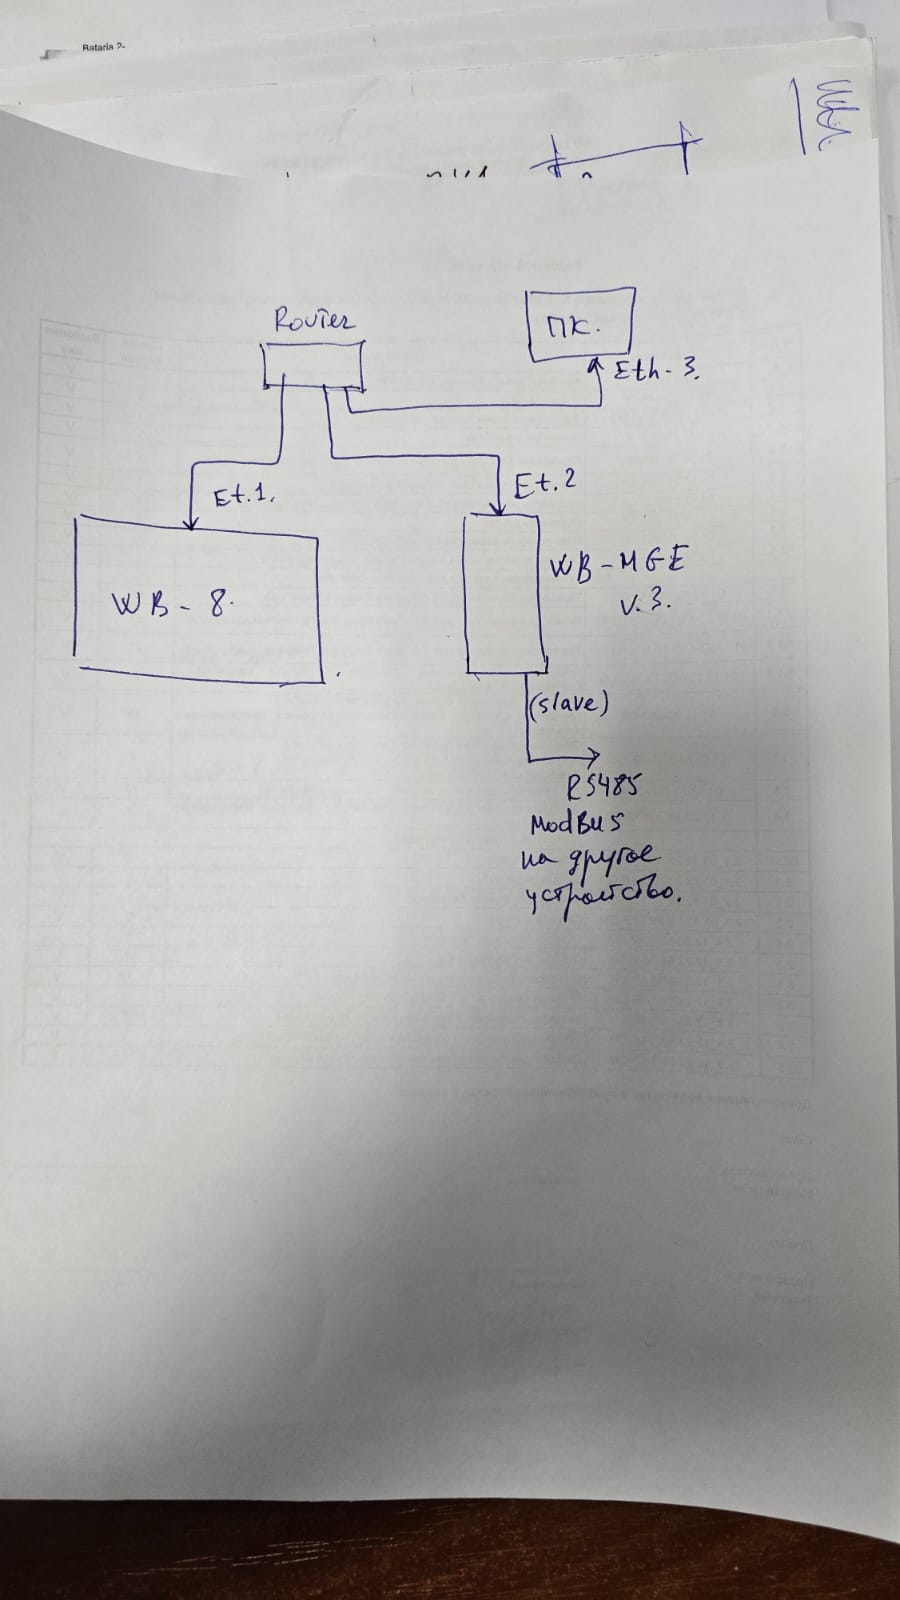 Bataria 2-
Router
ПК.
Eth-3.
Et.1.
Et.2
WB-8.
WB-MGE
v.3.
(slave)
RS485
ModBus
на другое
устройство.